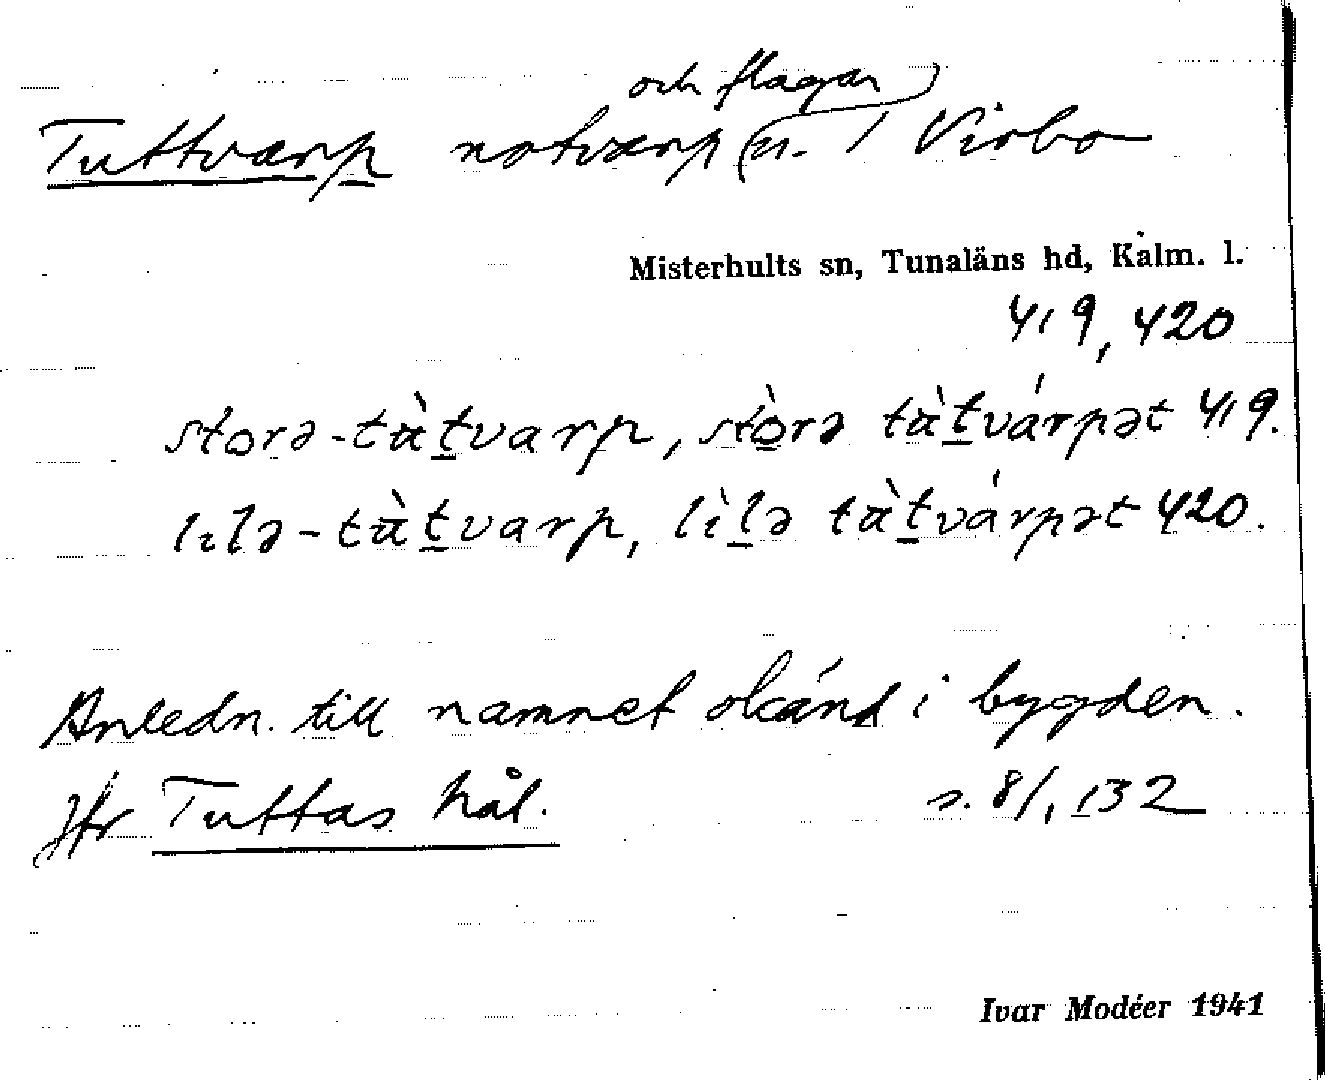 och flagar
Tuttvarp notvarp (u. / Virbo
Misterhults sn, Tunaläns hd, Kalm. l.
419, 420
storə-tàtvarp, stòrə tàtvárpət 419.
lılə-tàtvarp, lìlə tàtvárpət 420.
Anledn. till namnet okänd i bygden.
Jfr Tuttas hål. s. 81, 132
Ivar Modéer 1941